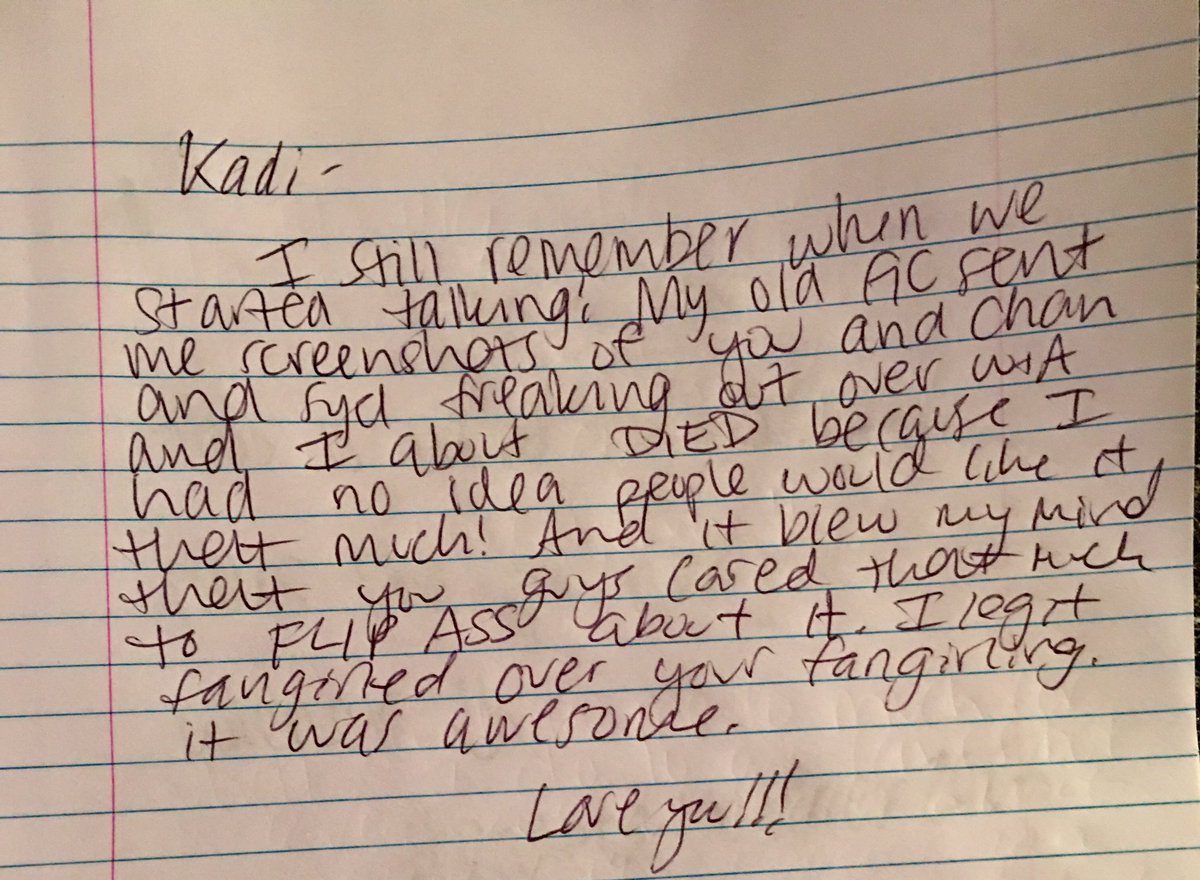 Kadi-
I still remember when we
started talking! My old GC sent
me screenshots of you and Chan
and Syd freaking out over
and I about DIED because I
had no idea people would like it
that much! And it blew my mind
that you guys cared that much
to FLIP ASS about it. I legit
fangirled over your fangirling.
it was awesome.
Love you!!!